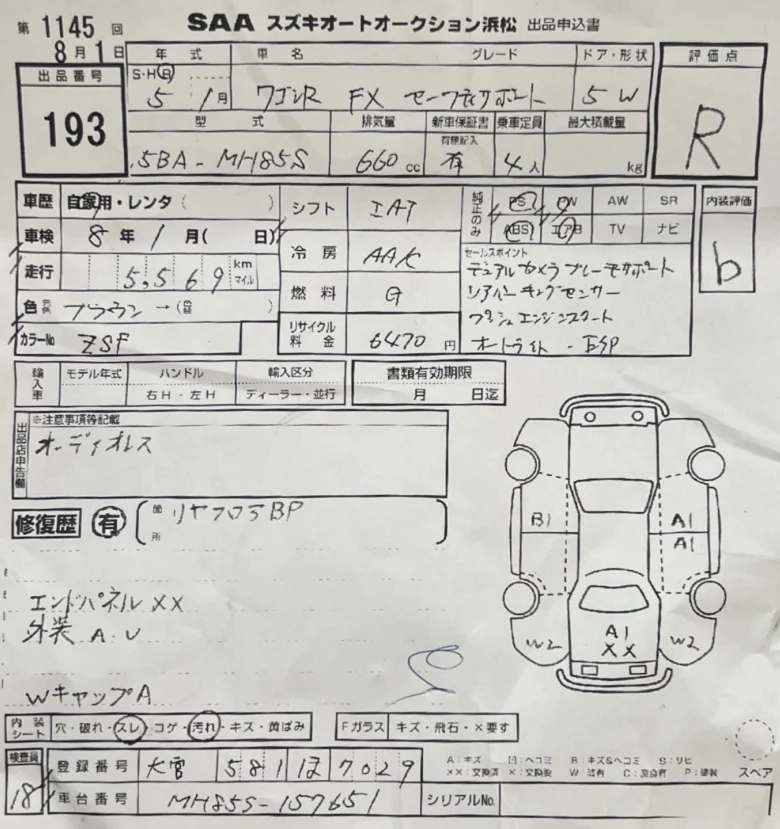 第 1145 回 SAA スズキオートオークション浜松 出品申込書
8月1日
出品番号
193
年式 車名 グレード ドア・形状
S・H・R 5 1月 ワゴンR FX セーフティサポート 5 W
型式 排気量 新車保証書 有無記入 乗車定員 最大積載量
5BA-MH85S 660 cc 有 4人 kg
評価点
R
車歴 自家用・レンタ( )
車検 8年1月( 日)
走行 5,569 km マイル
色 元色 ブラウン→(色替 )
カラーNo ZSF
シフト IAT
冷房 AAC
燃料 G
リサイクル料金 6470円
純正のみ PS PW AW SR
ABS エアB TV ナビ
内装評価
b
セールスポイント
デュアルカメラブレーキサポート
リアパーキングセンサー
プッシュエンジンスタート
オートライト - ESP
輸入車 モデル年式 ハンドル 輸入区分
右H・左H ディーラー・並行
書類有効期限
月 日迄
出品店申告欄
※注意事項等記載
オーディオレス
修復歴 有 箇所 リヤフロアBP
エンドパネルXX
外装 A.U
WキャップA
B1 A1
A1
W2 A1 W2
XX
内装シート 穴・破れ・スレ・コゲ・汚れ・キズ・黄ばみ
Fガラス キズ・飛石・×要す
検査員
18
登録番号 大宮 581 ほ 7029
車台番号 MH85S-157651
シリアルNo.
A:キズ B:キズ&ヘコミ S:サビ
XX:交換済 X:交換要 W:補有 C:腐食有 P:塗装
スペア